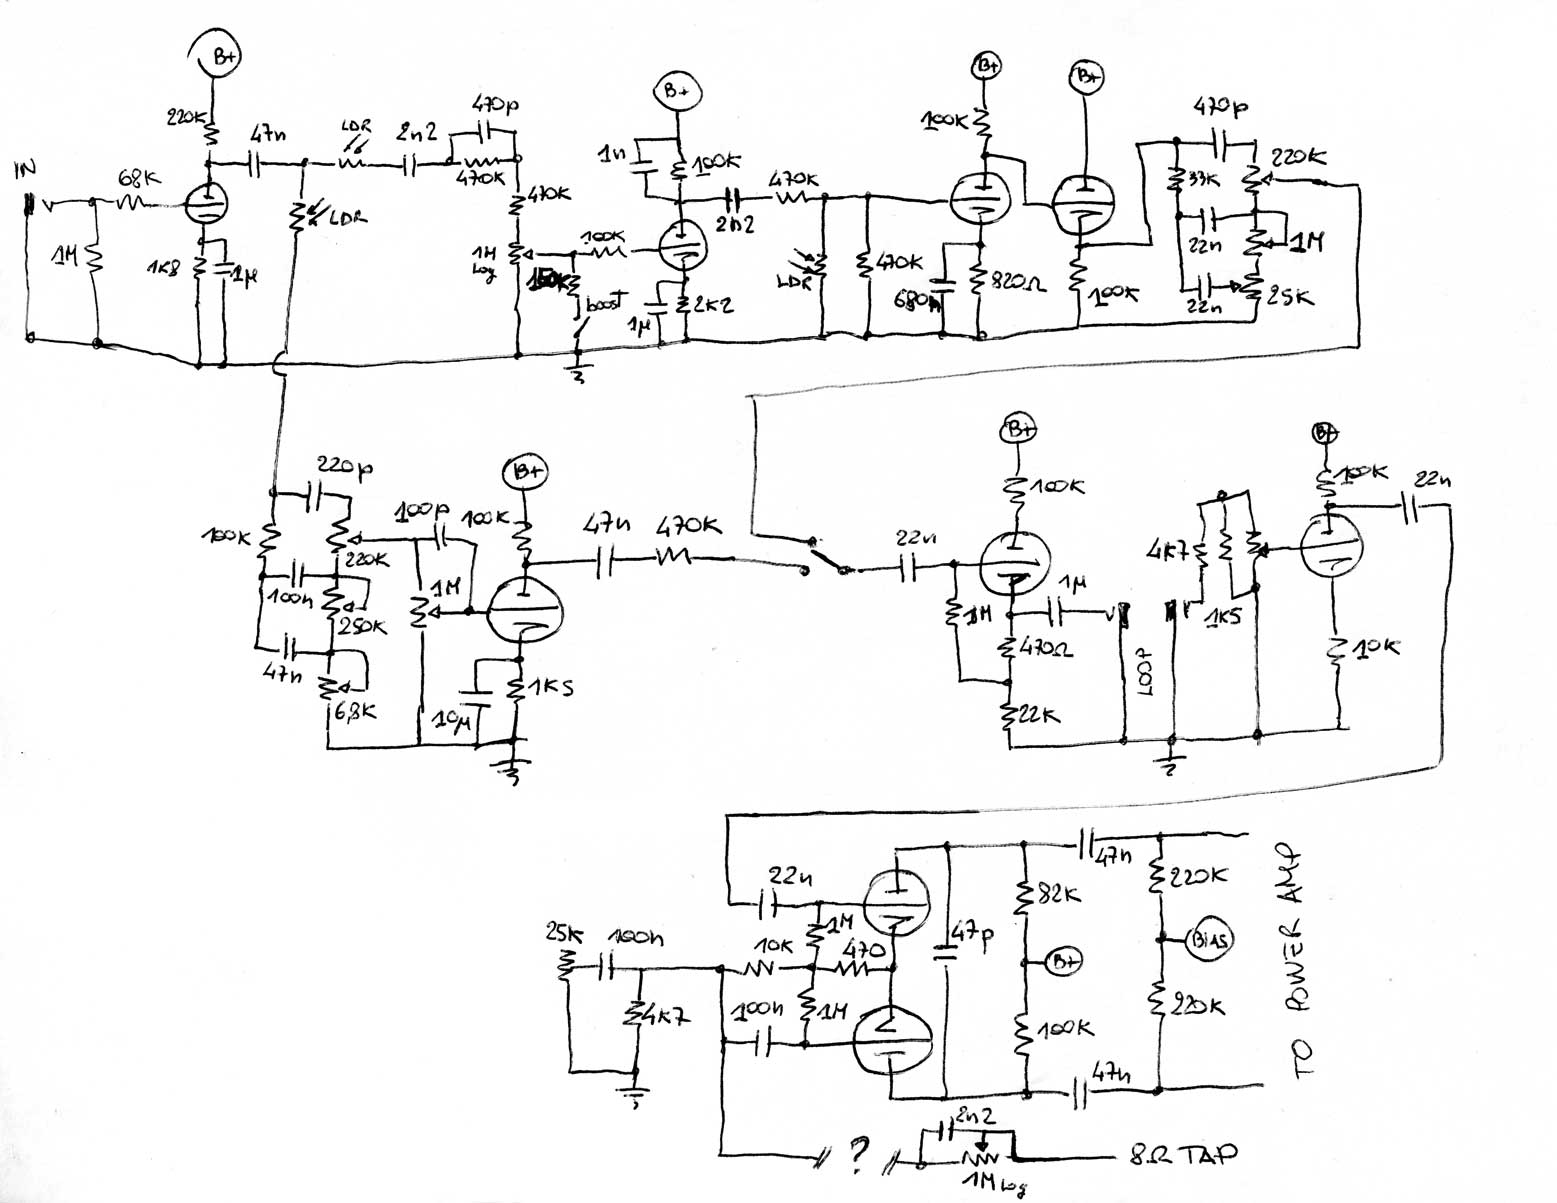 B+
220K
47n
LDR
2n2
470p
470K
IN
68K
1M
LDR
1K8
1µ
470K
1M
Log
100K
boost
B+
1n
100K
2n2
470K
1µ
2K2
LDR
470K
B+
100K
B+
680n
820Ω
100K
470p
33K
220K
22n
1M
22n
25K
220p
100K
220K
100n
250K
47n
6,8K
100p
1M
B+
100K
47n
470K
10µ
1K5
22n
B+
100K
1M
1µ
470Ω
22K
LOOP
4K7
1K5
B+
100K
22n
10K
22n
1M
25K
100n
10K
470
4K7
100n
1M
47p
82K
B+
100K
47n
220K
BIAS
220K
47n
TO POWER AMP
?
2n2
1M Log
8Ω TAP